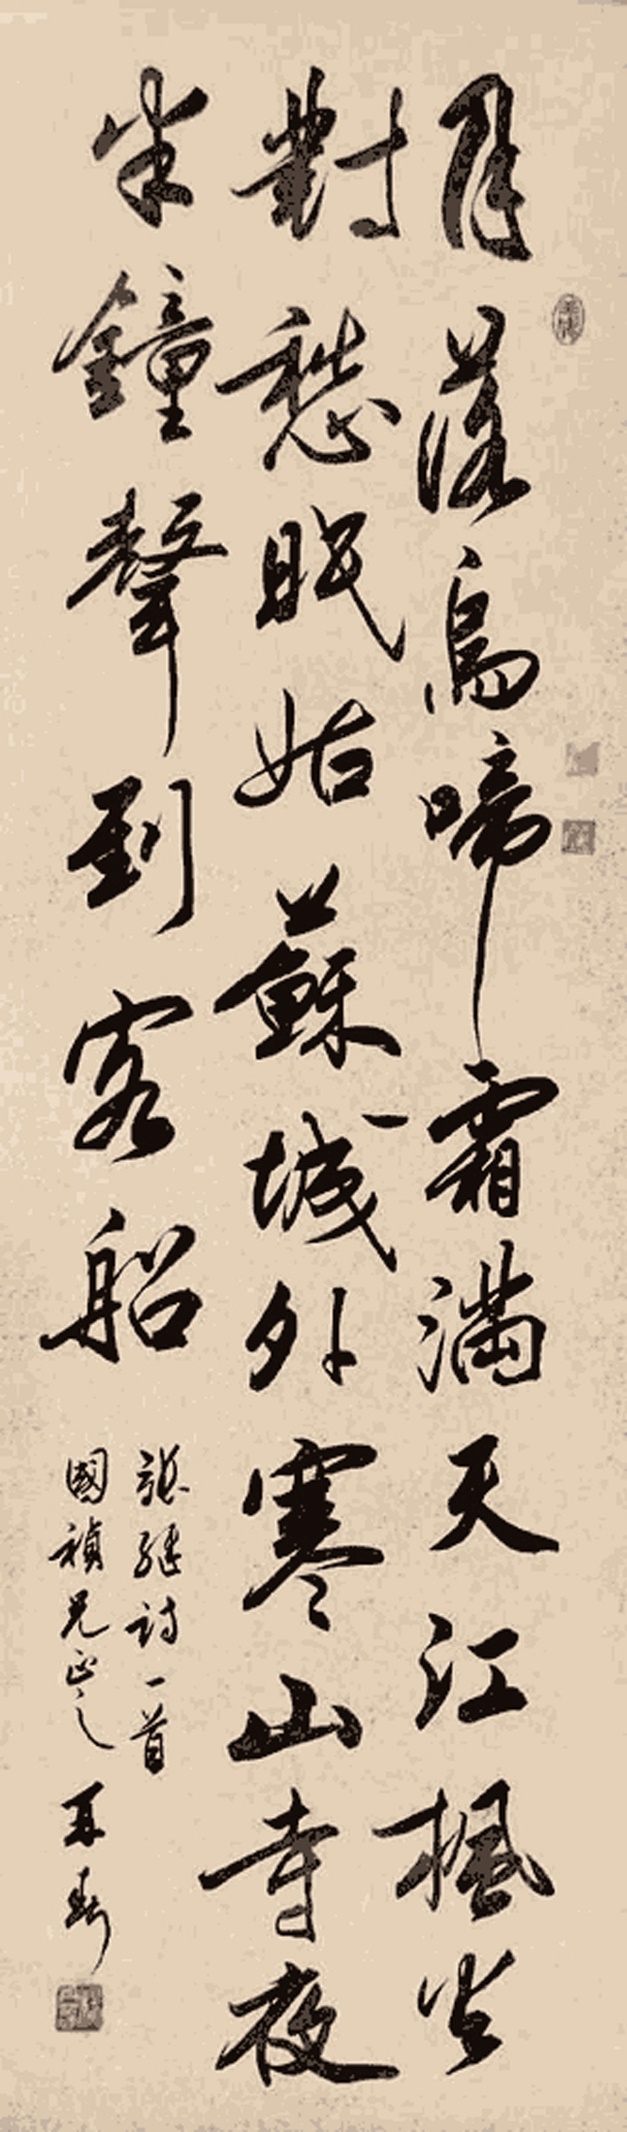 月落烏啼霜滿天江楓火
對愁眠姑蘇城外寒山寺夜
半鐘聲到客船
張繼詩一首
國禎兄正之